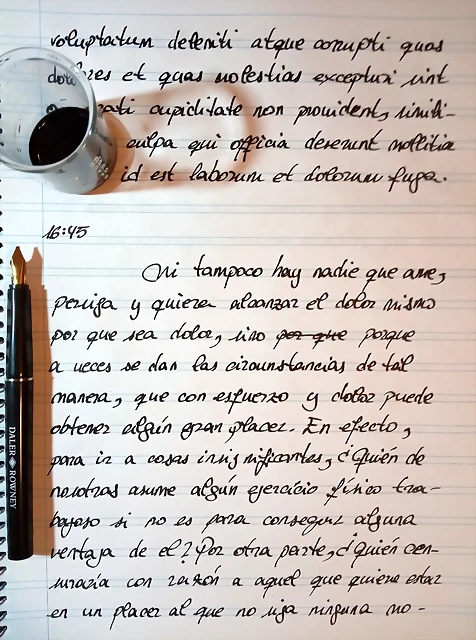 voluptatum deleniti atque corrupti quos
dolores et quas molestias excepturi sint
cati cupiditate non provident, simili-
culpa qui officia deserunt mollitia
id est laborum et dolorum fuga.
16:45
Ni tampoco hay nadie que ame,
persiga y quiera alcanzar el dolor mismo
por que sea dolor, sino por que porque
a veces se dan las circunstancias de tal
manera, que con esfuerzo y dolor puede
obtener algún gran placer. En efecto,
para ir a cosas insignificantes, ¿Quién de
nosotras asume algún ejercicio físico tra-
bajoso si no es para conseguir alguna
ventaja de el? Por otra parte, ¿quién cen-
suraría con razón a aquel que quiere estar
en un placer al que no siga ninguna mo-
DALER ROWNEY